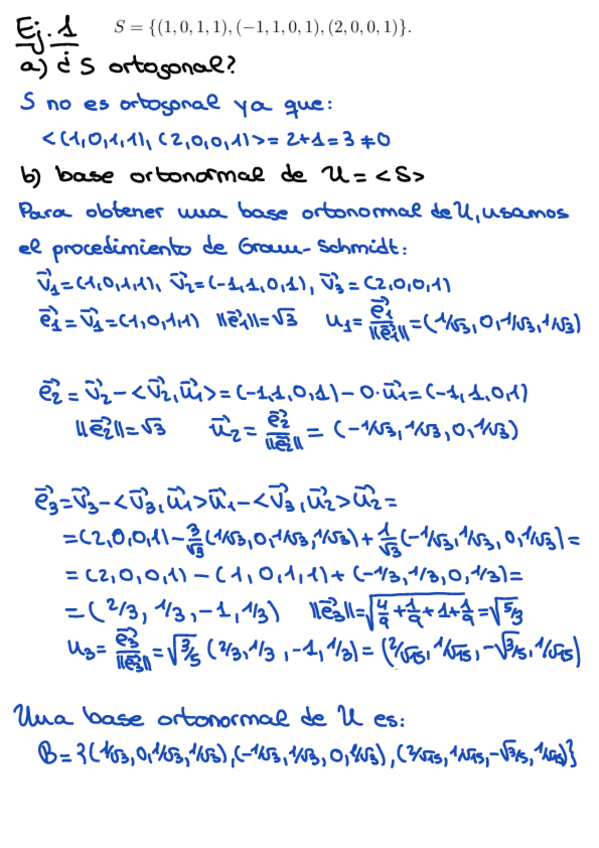 Ej. 1 S = {(1, 0, 1, 1), (−1, 1, 0, 1), (2, 0, 0, 1)}.
a) ¿ S ortogonal?
S no es ortogonal ya que:
<(1,0,1,1), (2,0,0,1)> = 2+1 = 3 ≠ 0
b) base ortonormal de U = <S>
Para obtener una base ortonormal de U, usamos
el procedimiento de Gram-Schmidt:
v⃗₁ = (1,0,1,1), v⃗₂ = (-1,1,0,1), v⃗₃ = (2,0,0,1)
e⃗₁ = v⃗₁ = (1,0,1,1) ||e⃗₁|| = √3 u₁ = e⃗₁/||e⃗₁|| = (1/√3, 0, 1/√3, 1/√3)
e⃗₂ = v⃗₂ - <v⃗₂, u⃗₁> = (-1,1,0,1) - 0·u⃗₁ = (-1,1,0,1)
||e⃗₂|| = √3 u⃗₂ = e⃗₂/||e⃗₂|| = (-1/√3, 1/√3, 0, 1/√3)
e⃗₃ = v⃗₃ - <v⃗₃, u⃗₁> u⃗₁ - <v⃗₃, u⃗₂> u⃗₂ =
= (2,0,0,1) - 3/√3 (1/√3, 0, 1/√3, 1/√3) + 1/√3 (-1/√3, 1/√3, 0, 1/√3) =
= (2,0,0,1) - (1,0,1,1) + (-1/3, 1/3, 0, 1/3) =
= (2/3, 1/3, -1, 1/3) ||e⃗₃|| = √(4/9 + 1/9 + 1 + 1/9) = √5/3
u₃ = e⃗₃/||e⃗₃|| = √3/5 (2/3, 1/3, -1, 1/3) = (2/√15, 1/√15, -√3/5, 1/√15)
Una base ortonormal de U es:
B = {(1/√3, 0, 1/√3, 1/√3), (-1/√3, 1/√3, 0, 1/√3), (2/√15, 1/√15, -√3/5, 1/√15)}